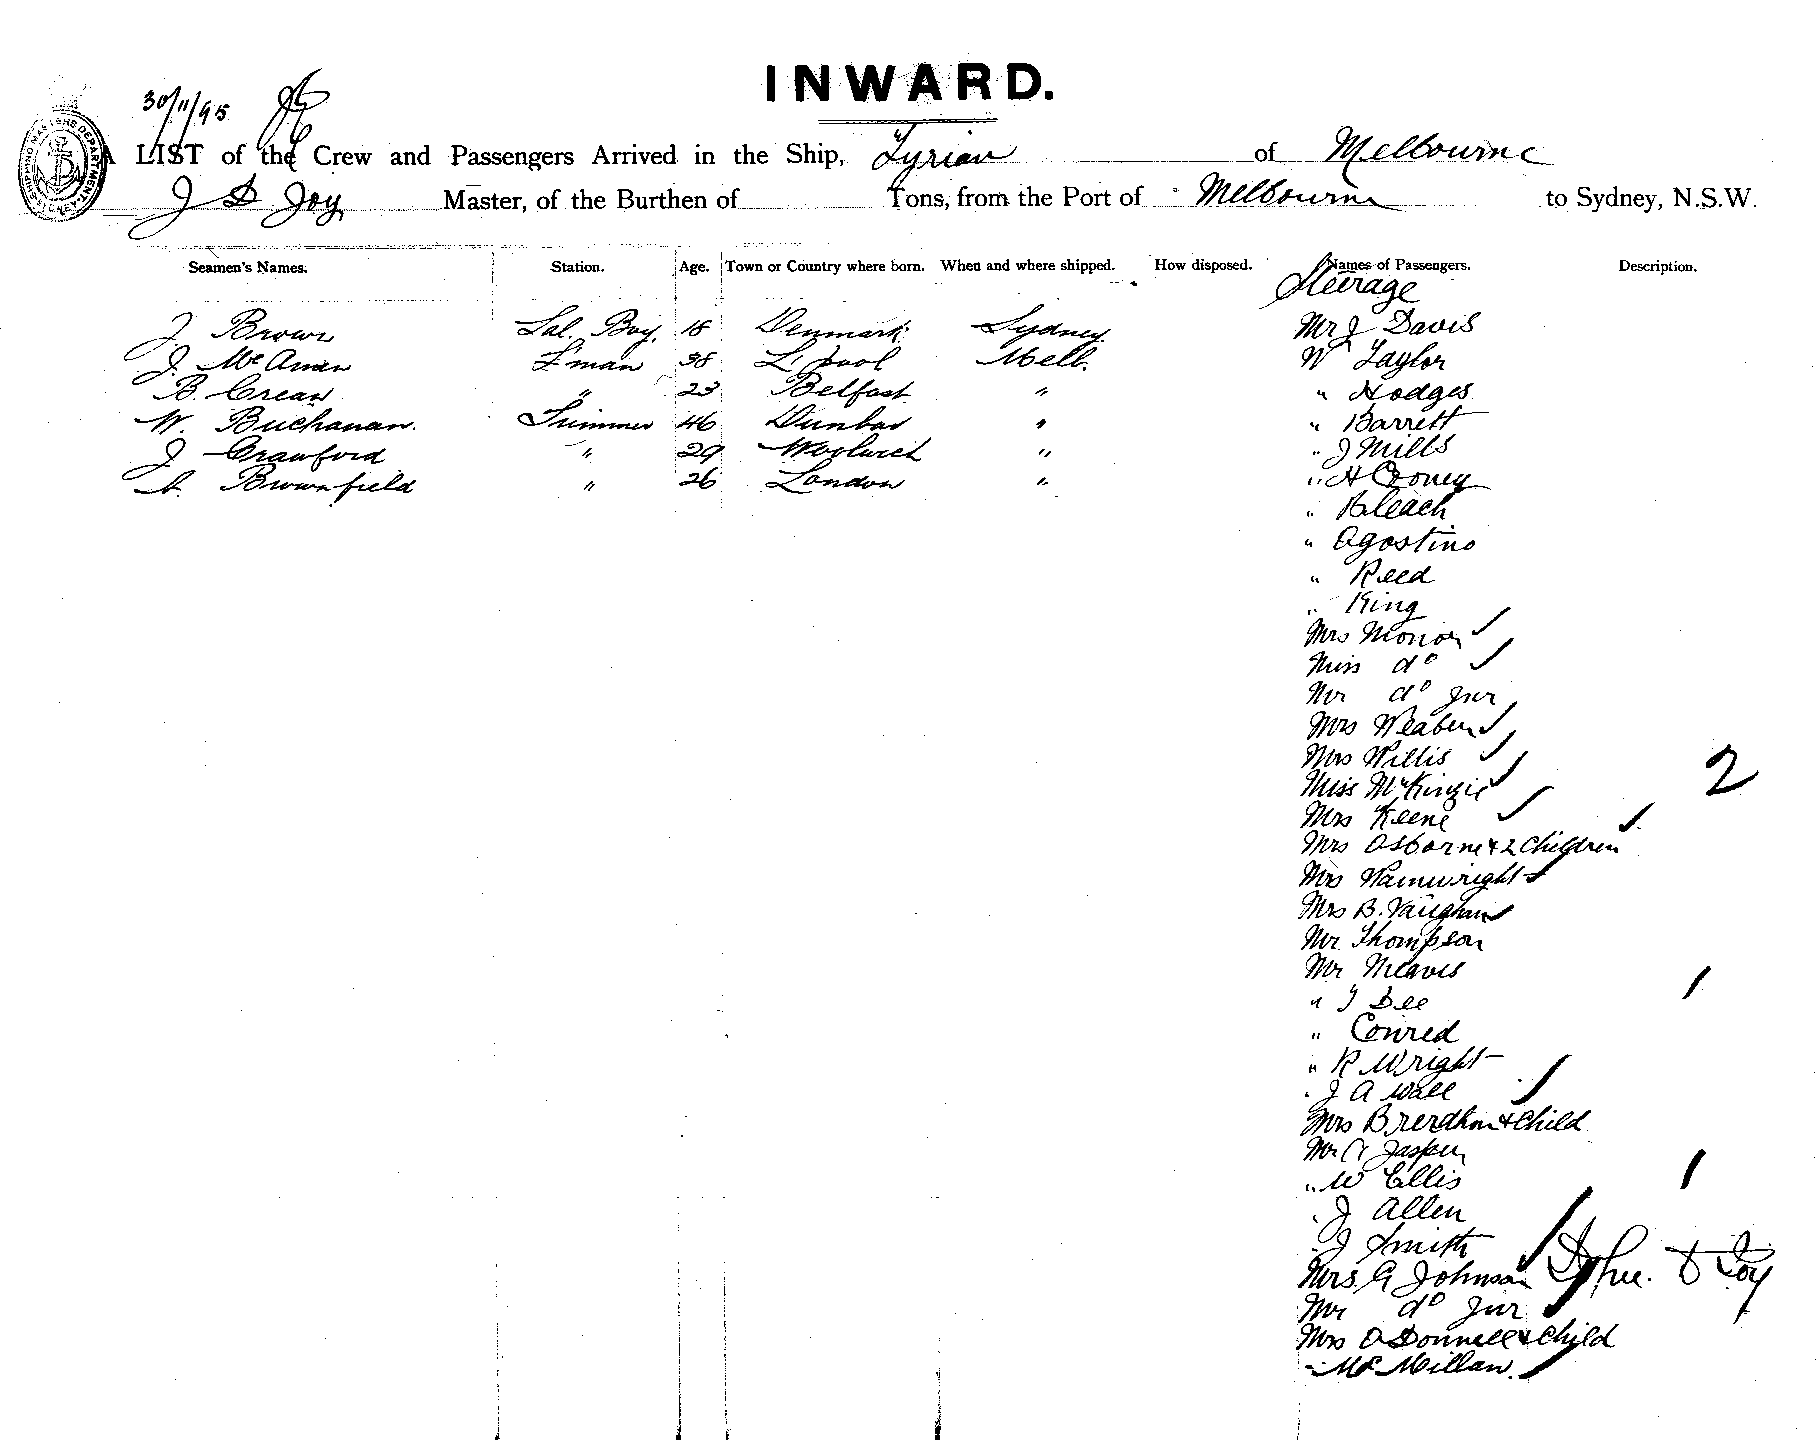 INWARD.
30/11/95
A LIST of the Crew and Passengers Arrived in the Ship, Tyrian of Melbourne
J D Joy Master, of the Burthen of Tons, from the Port of Melbourne to Sydney, N.S.W.
Seamen's Names. Station. Age. Town or Country where born. When and where shipped. How disposed. Names of Passengers. Description.
Steerage
J Brown Sal. Boy. 18 Denmark Sydney Mr J Davis
J. F'man 38 L'pool Melb. W Taylor
B. Crean " 23 Belfast " " Hodges
W. Buchanan. Trimmer 46 Dunbar " " Barrett
J Crawford " 29 Woolwich " " J Mills
Brownfield " 26 London " " H Cooney
"
" Agostino
" Reed
" King
Mrs
Miss do
Mr do Jnr
Mrs
Mrs Willis
2
Miss McKinzie
Mrs Keene
Mrs Osborne & 2 Children
Mrs Wainwright
Mrs B. Vaughan
Mr Thompson
Mr Meavis
1
" Dee
" Conred
" R Wright
" J A Wall
Mrs & Child
Mr Jasper
" W Ellis
1
" J Allen
" J Smith
Mrs. G Johnson
D Joy
Mr do Jnr
Mrs O'Donnell & Child
" McMillan.